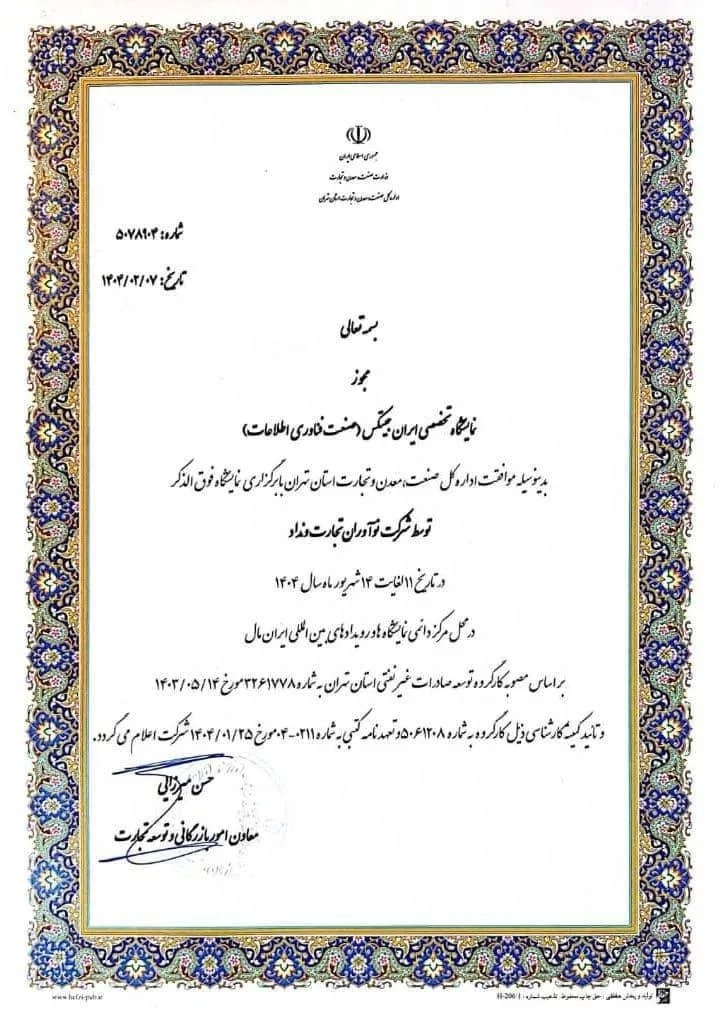 جمهوری اسلامی ایران
وزارت صنعت، معدن و تجارت
اداره کل صنعت، معدن و تجارت استان تهران
شماره: ۵۰۷۸۹۰۴
تاریخ: ۱۴۰۴/۰۲/۰۷
بسمه تعالی
مجوز
نمایشگاه تخصصی ایران جیتکس (صنعت فناوری اطلاعات)
بدینوسیله موافقت اداره کل صنعت، معدن و تجارت استان تهران با برگزاری نمایشگاه فوق الذکر
توسط شرکت نوآوران تجارت ونداد
در تاریخ ۱۱ لغایت ۱۴ شهریور ماه سال ۱۴۰۴
در محل مرکز دائمی نمایشگاه ها و رویدادهای بین المللی ایران مال
بر اساس مصوبه کارگروه توسعه صادرات غیر نفتی استان تهران به شماره ۳۲۶۱۷۷۸ مورخ ۱۴۰۳/۰۵/۱۴
و تائید کمیته کارشناسی ذیل کارگروه به شماره ۵۰۶۱۲۰۸ و تعهدنامه کتبی به شماره ۰۲۱۱-۰۴ مورخ ۱۴۰۴/۰۱/۲۵ شرکت اعلام می گردد.
حسن میرزایی
معاون امور بازرگانی و توسعه تجارت
تولید و پخش حفظی : حق چاپ محفوظ. تذهیب شماره : H-206/1
www.hefzi-pub.ir